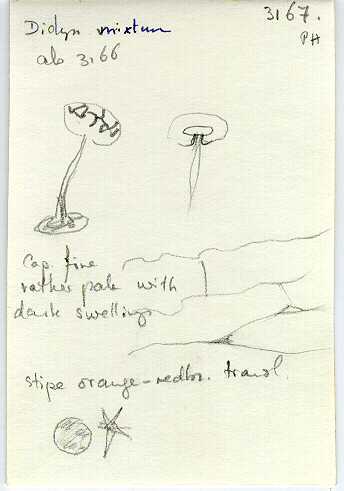 3167.
PH
Didym mixtum
ab 3166
Cap. fine
rather pale with
dark swellings
stipe orange-redbr. transl.